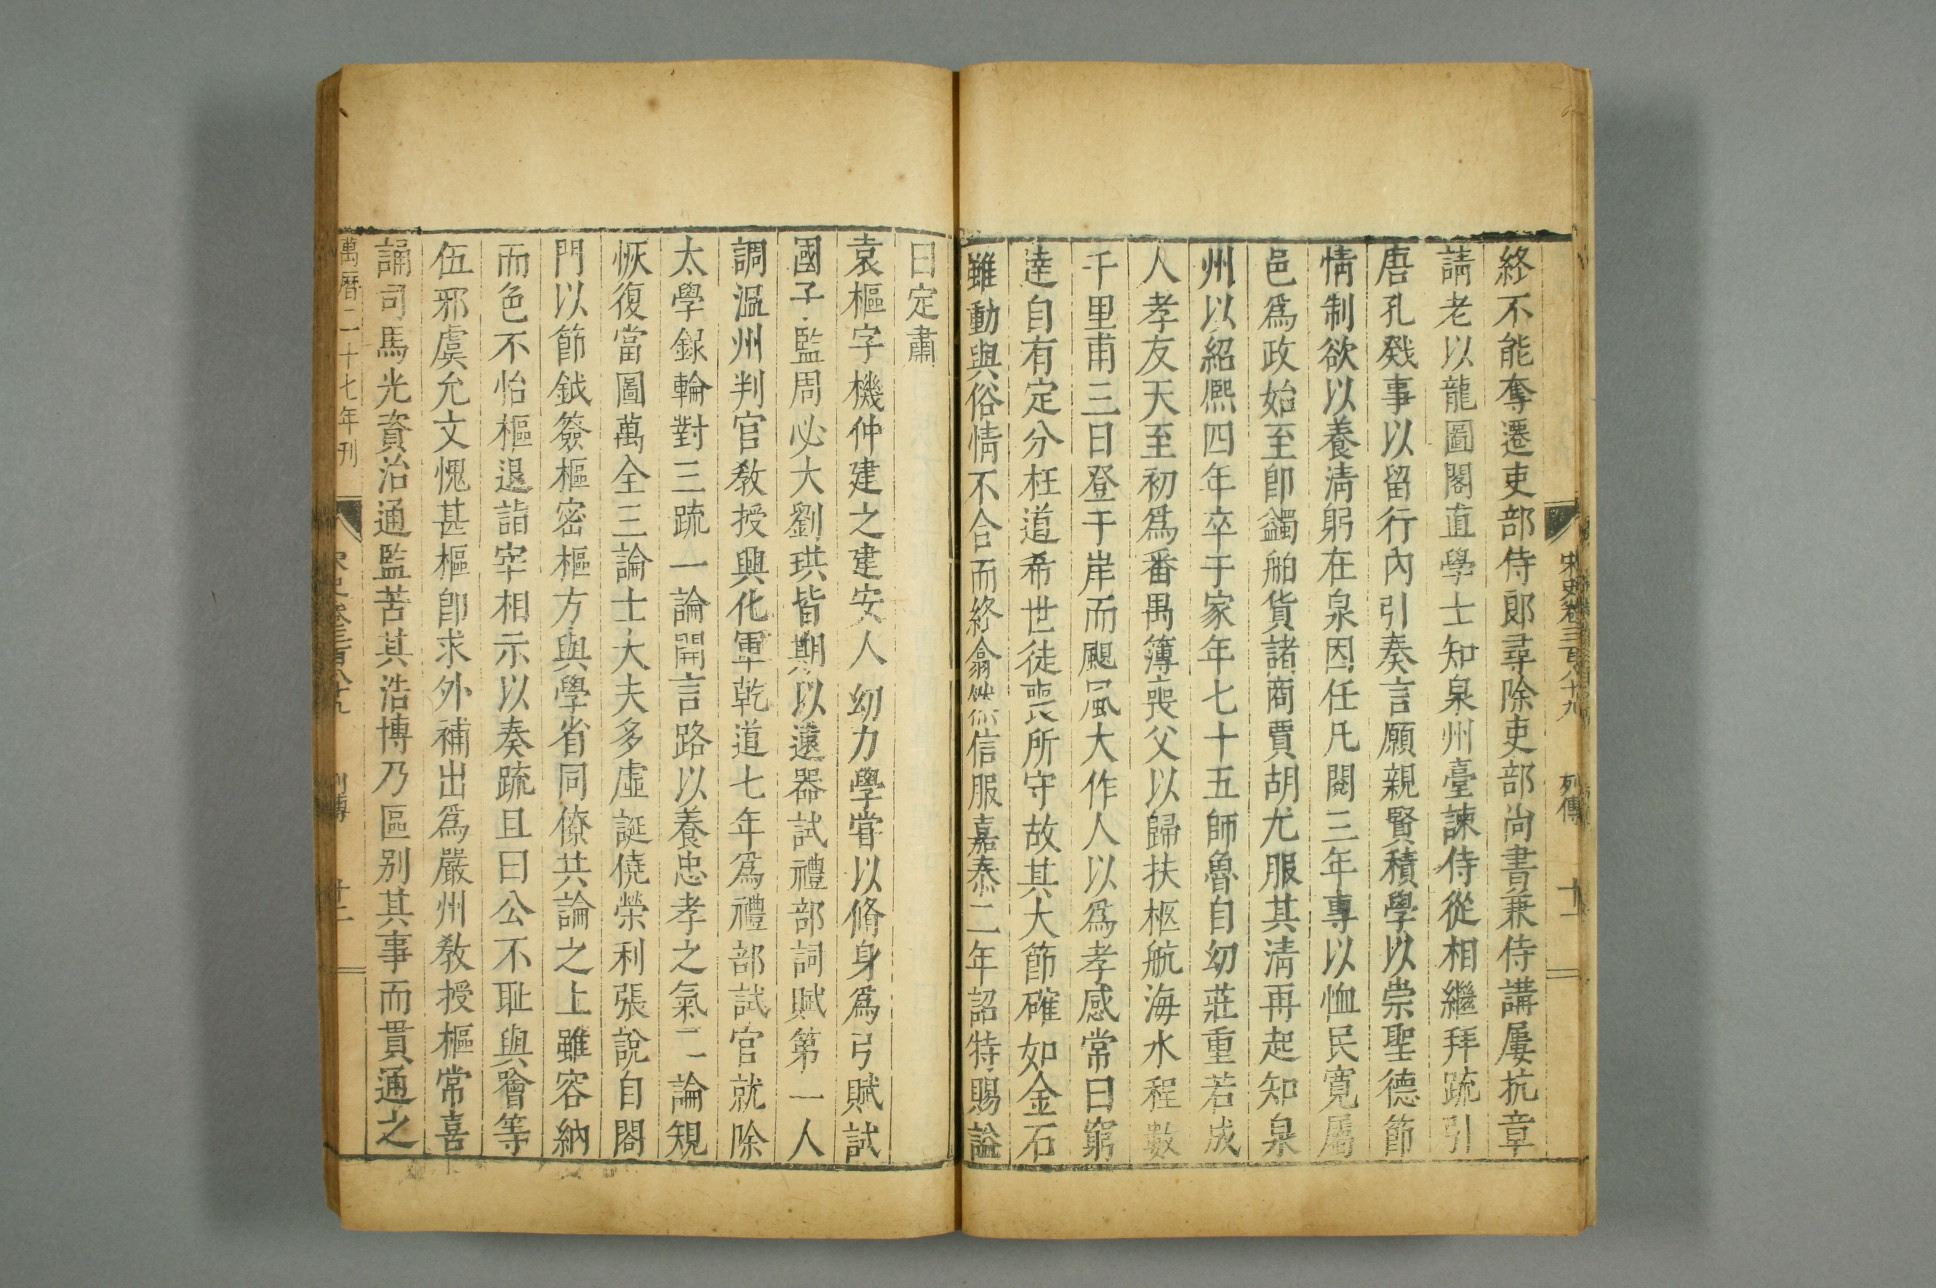 宋史卷三百八十九 列傳 十一
終不能奪遷吏部侍郎尋除吏部尚書兼侍講屢抗章
請老以龍圖閣直學士知泉州臺諫侍從相繼拜疏引
唐孔戣事以留行內引奏言願親賢積學以崇聖德節
情制欲以養淸躬在泉因任凡閱三年專以恤民寬屬
邑爲政始至卽蠲舶貨諸商賈胡尤服其淸再起知泉
州以紹熙四年卒于家年七十五師魯自幼莊重若成
人孝友天至初爲番禺簿喪父以歸扶柩航海水程數
千里甫三日登于岸而颶風大作人以爲孝感常曰窮
達自有定分枉道希世徒喪所守故其大節確如金石
雖動與俗情不合而終翕然信服嘉泰二年詔特賜謚
曰定肅
袁樞字機仲建之建安人幼力學嘗以脩身爲弓賦試
國子監周必大劉珙皆期以遠器試禮部詞賦第一人
調溫州判官敎授興化軍乾道七年爲禮部試官就除
太學錄輪對三疏一論開言路以養忠孝之氣二論規
恢復當圖萬全三論士大夫多虛誕僥榮利張說自閤
門以節鉞簽樞密樞方與學省同僚共論之上雖容納
而色不怡樞退詣宰相示以奏疏且曰公不耻與噲等
伍邪虞允文愧甚樞卽求外補出爲嚴州敎授樞常喜
誦司馬光資治通監苦其浩博乃區别其事而貫通之
萬曆二十七年刊 宋史卷三百八十九 列傳 十二